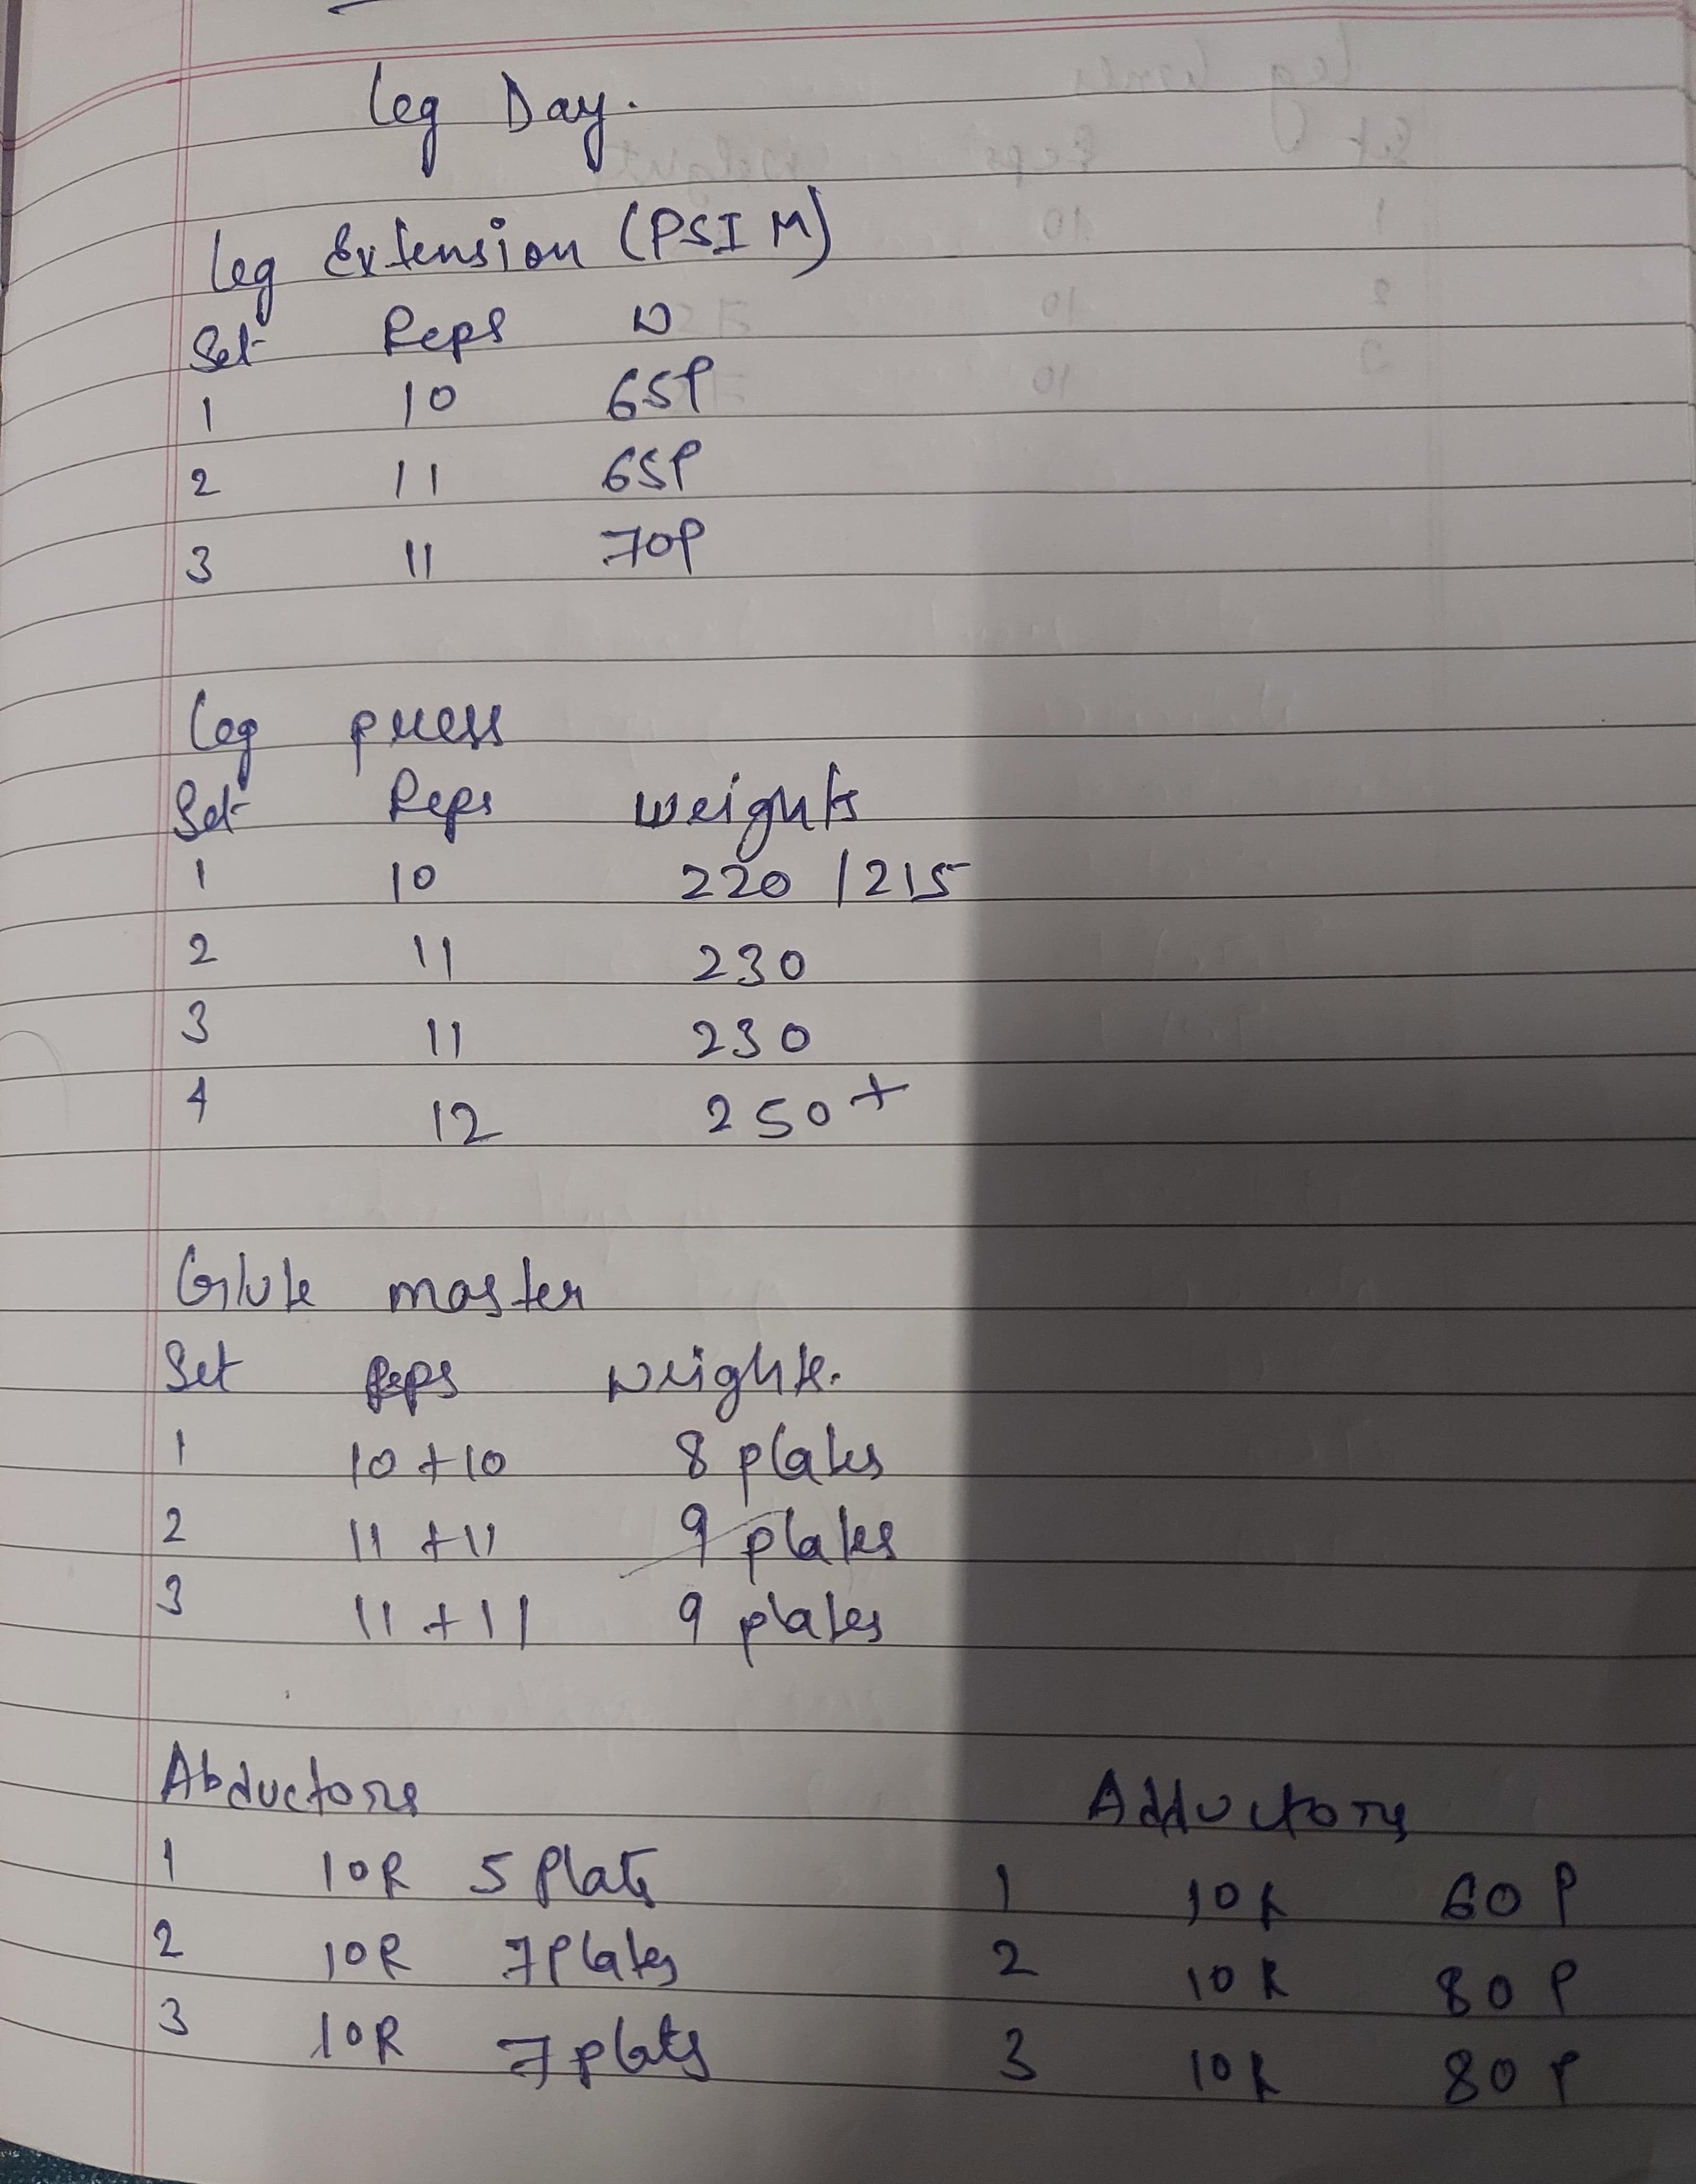 Leg Day.
Leg Extension (PSI M)
Set Reps W
1 10 65P
2 11 65P
3 11 70P
Leg press
Set Reps weights
1 10 220 / 215
2 11 230
3 11 230
4 12 250+
Glute master
Set Reps weights.
1 10 + 10 8 plates
2 11 + 11 9 plates
3 11 + 11 9 plates
Abductors
1 10R 5 Plats
2 10R 7 Plates
3 10R 7 plats
Adductors
1 10R 60 P
2 10R 80 P
3 10R 80 P